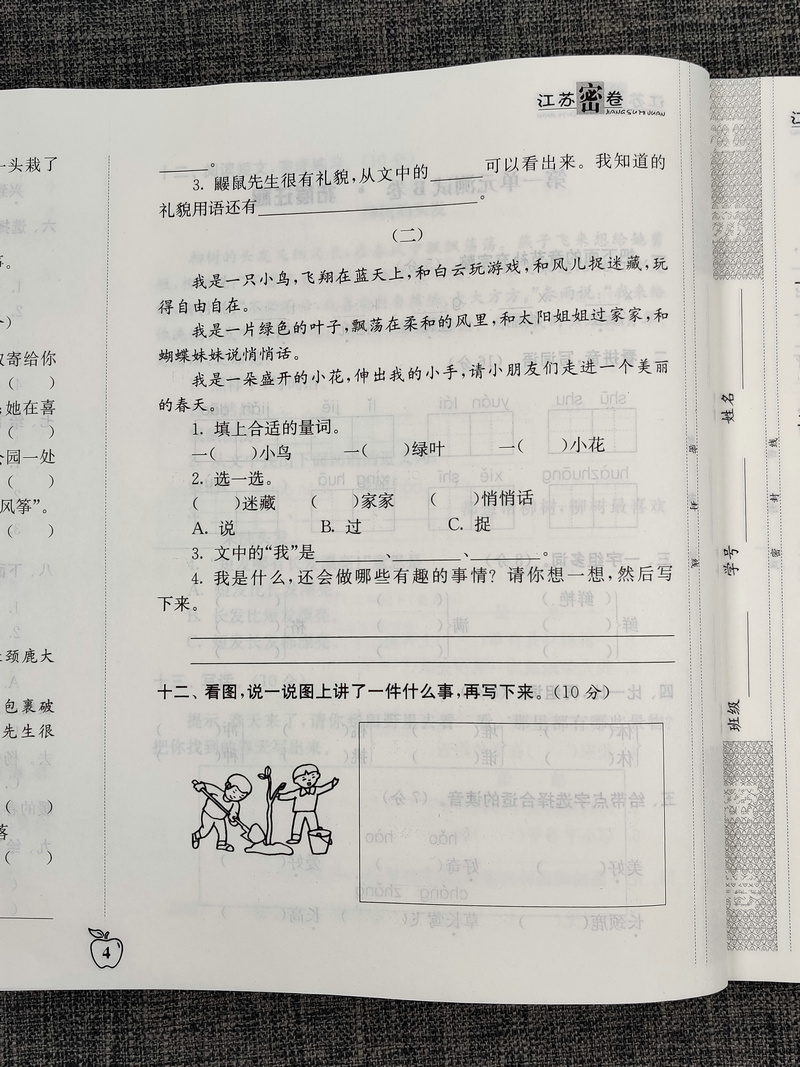 江苏密卷
JIANGSU MIJUAN
一头栽了
寄给你
她在喜
公园一处
风筝”。
颈鹿大
包裹破
先生很
落
______。
3. 鼹鼠先生很有礼貌,从文中的______可以看出来。我知道的
礼貌用语还有______。
(二)
我是一只小鸟,飞翔在蓝天上,和白云玩游戏,和风儿捉迷藏,玩
得自由自在。
我是一片绿色的叶子,飘荡在柔和的风里,和太阳姐姐过家家,和
蝴蝶妹妹说悄悄话。
我是一朵盛开的小花,伸出我的小手,请小朋友们走进一个美丽
的春天。
1. 填上合适的量词。
一( )小鸟 一( )绿叶 一( )小花
2. 选一选。
( )迷藏 ( )家家 ( )悄悄话
A. 说 B. 过 C. 捉
3. 文中的“我”是______、______、______。
4. 我是什么,还会做哪些有趣的事情?请你想一想,然后写
下来。
十二、看图,说一说图上讲了一件什么事,再写下来。(10 分)
4
姓名
学号
班级
密
封
线